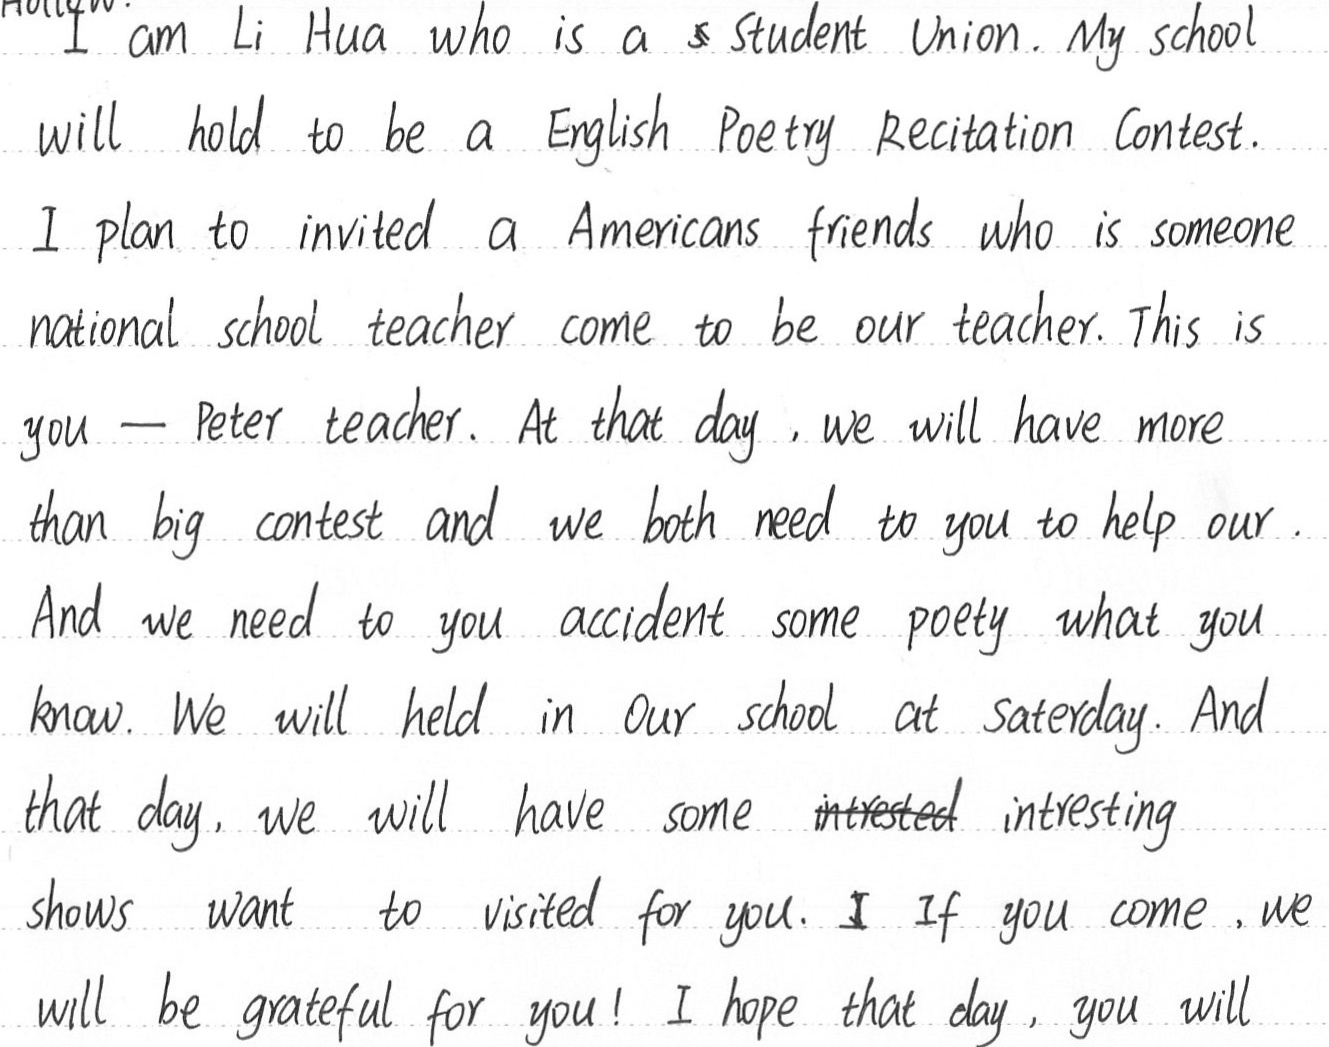 I am Li Hua who is a Student Union. My school
will hold to be a English Poetry Recitation Contest.
I plan to invited a Americans friends who is someone
national school teacher come to be our teacher. This is
you — Peter teacher. At that day, we will have more
than big contest and we both need to you to help our.
And we need to you accident some poety what you
know. We will held in Our school at Saterday. And
that day, we will have some intrested intresting
shows want to visited for you. I If you come, we
will be grateful for you! I hope that day, you will